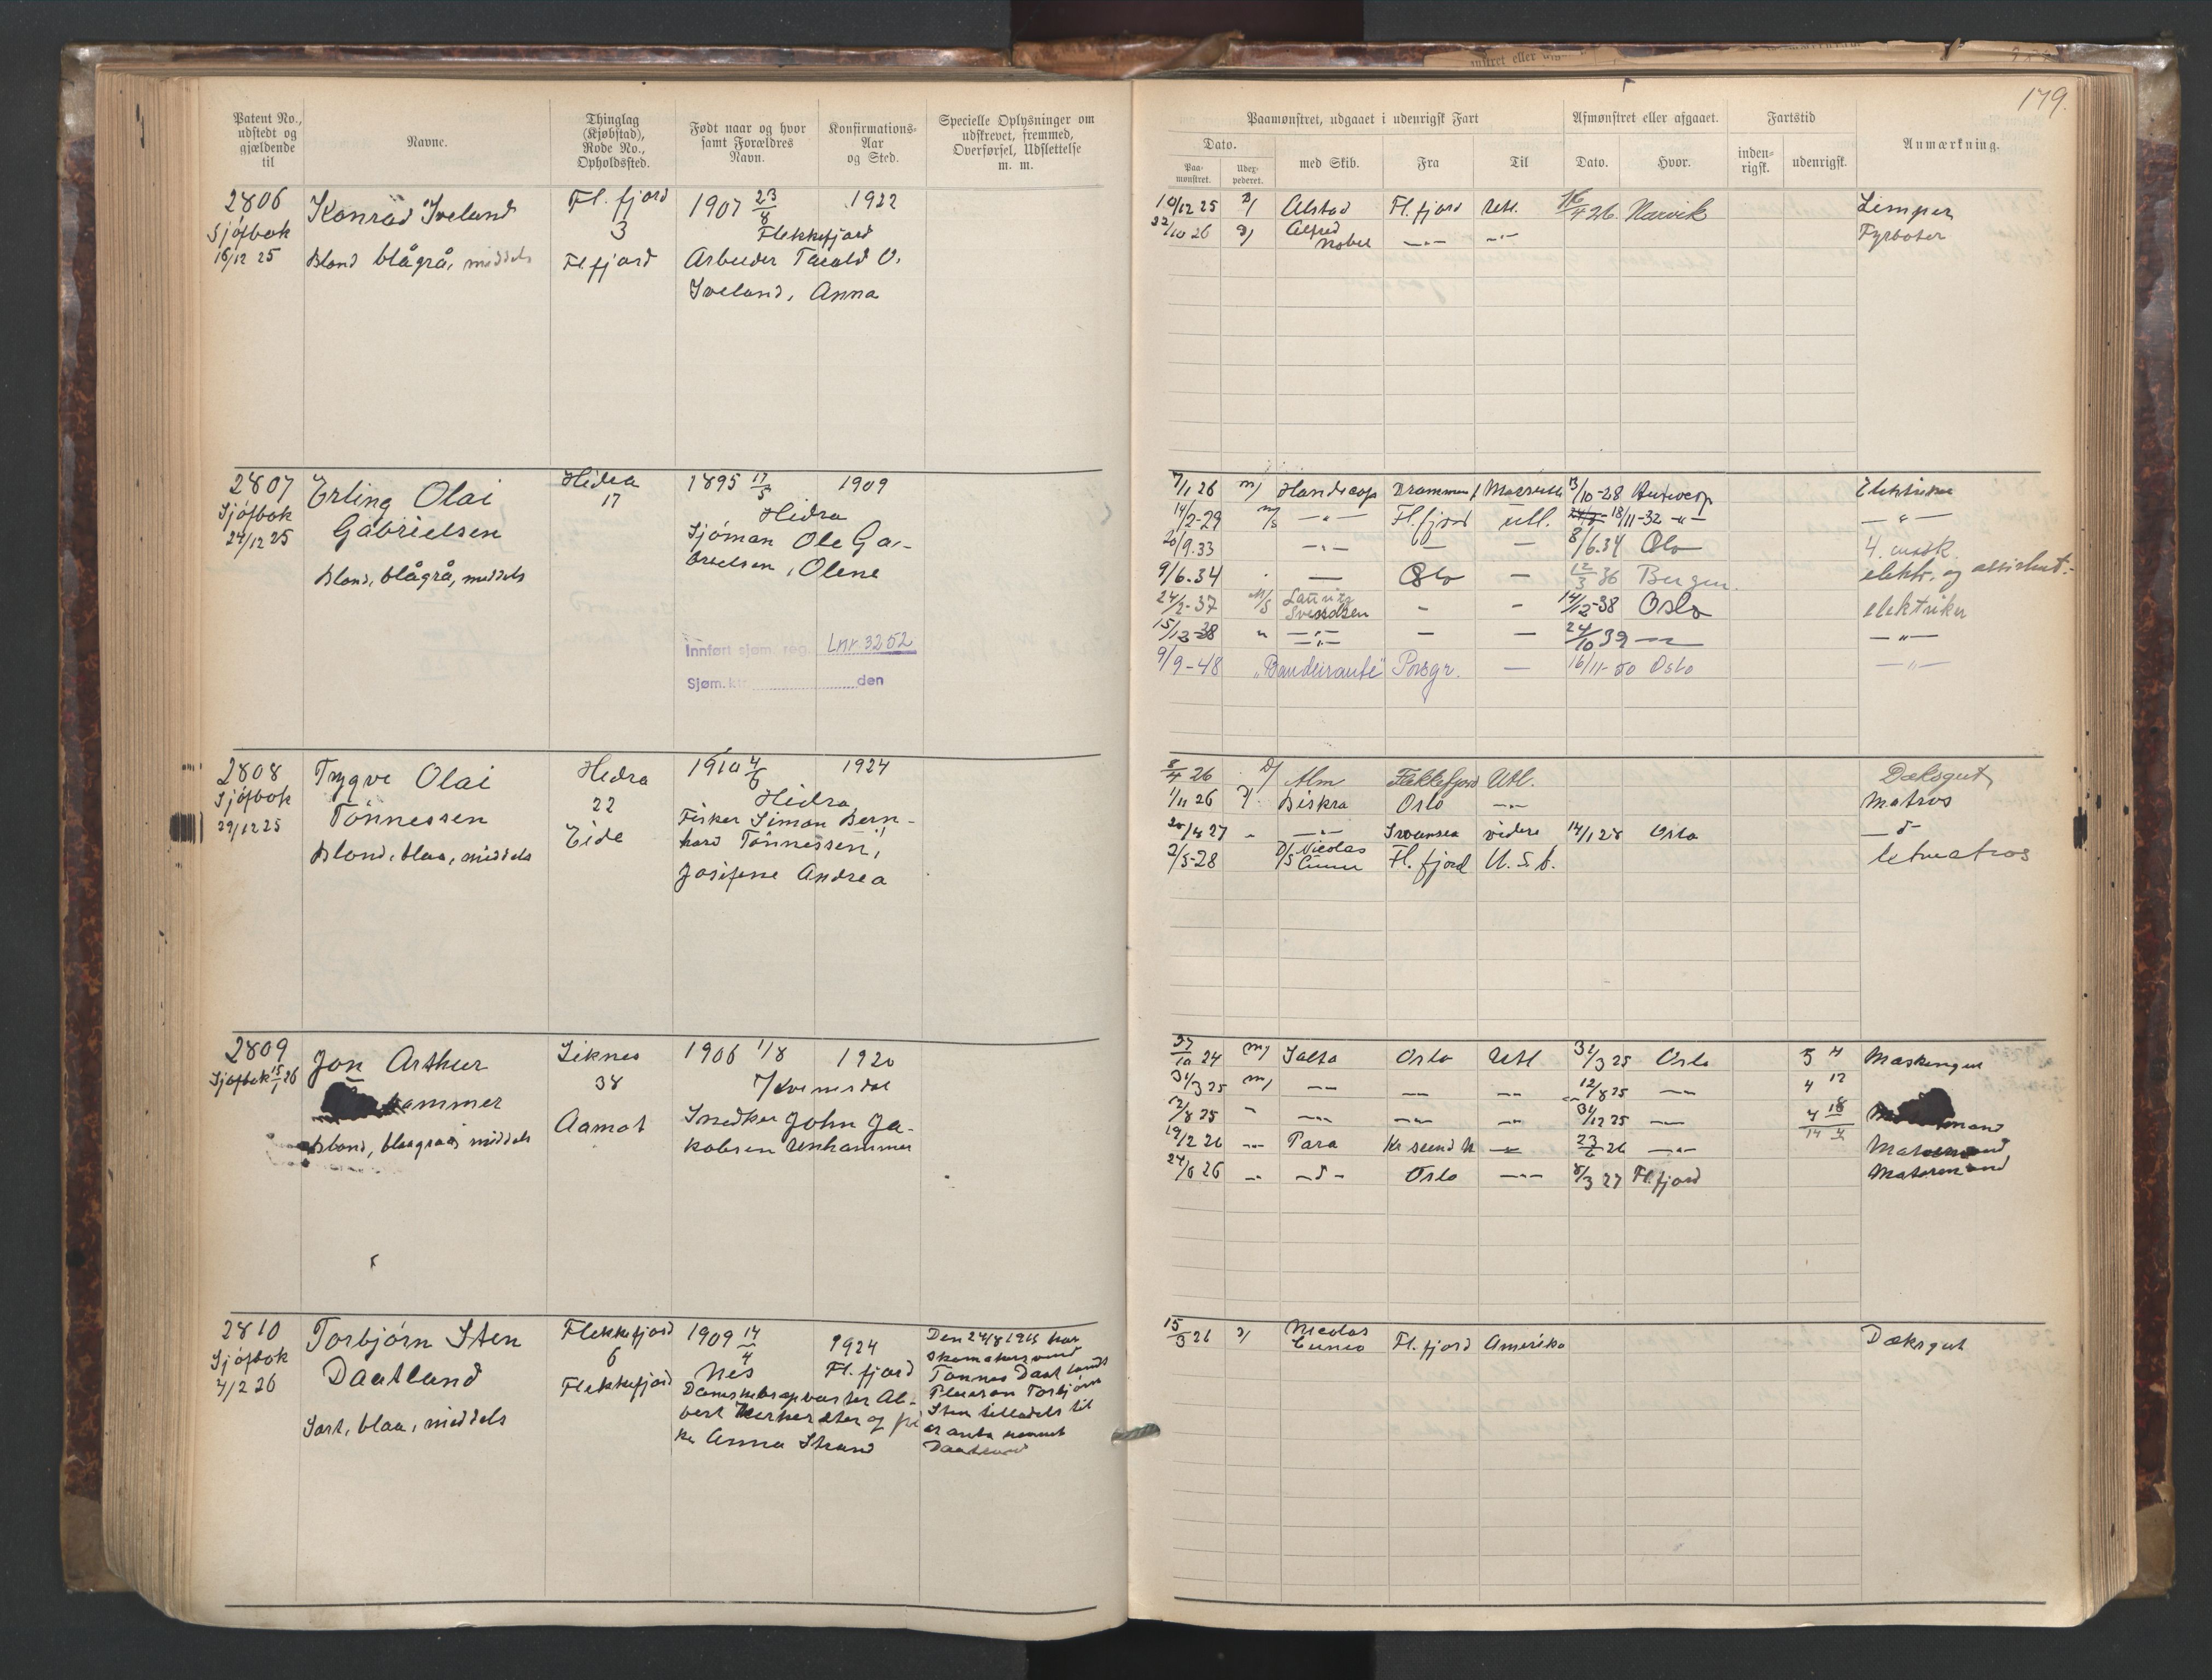 179.
Patent No., udstedt og gjældende til
Navne.
Thinglag (Kjøbstad), Rode No., Opholdssted.
Født naar og hvor samt Forældres Navn.
Konfirmations-Aar og Sted.
Specielle Oplysninger om udskrevet, fremmed, Overførsel, Udslettelse m. m.
Paamønstret, udgaaet i udenrigsk Fart
Afmønstret eller afgaaet.
Fartstid
Dato.
Paa-mønstret.
Udex-pederet.
med Skib.
Fra
Til
Dato.
Hvor.
inden-rigsk.
udenrigsk.
Anmærkning.
2806 Konrad Iveland Fl. fjord 1907 23/8 1922
Sjöfbok 3 Flekkefjord
16/12 25 Blond blågrå, middels Fl fjord Arbeider Tarald O.
Iveland, Anna
10/12 25 D/ Alstad Fl. fjord Utl. 4 26. Narvik Lemper
22/10 26 D/ Alfred Nobel —"— —"— Fyrböter
2807 Erling Olai Hidra 1895 17/5 1909
Sjöfbok Gabrielsen 17 Hidra
24/12 25 Sjöman Ole Ga-
Blond, blågrå, middels brielsen, Olene
Innført sjøm. reg. Lnr. 3252
Sjøm.ktr. den
7/1 26 m/ Handicap Drammen 13/10-28 Antwerp Elektriker
14/2-29 m/s —"— Fl. fjord utl. 18/11-32 -"- —"—
20/9.33 —"— — — 8/6.34 Oslo 4. mask.
9/6.34 — Oslo — 12/3 36 Bergen. elektr. og assistent.
24/2-37 M/S Lauritz Svendsen - - 14/12-38 Oslo elektriker
15/12-38 " —"— — — 24/10 39 — —"—
9/9-48 "Bandeirante" Porsgr. — 16/11-50 Oslo —"—
2808 Trygve Olai Hidra 1910 4/6 1924
Sjöfbok Tönnessen 22 Hidra
29/12 25 Eide Fisker Simon Bern-
Blond, blaa, middels hard Tönnessen,
Josefine Andrea
8/4 26 D/ Alm Flekkefjord Utl. Dæksgut
1/11 26 D/. Biskra Oslo —"— Matros
20/4 27 " —"— Swansea videre 14/1 28 Oslo —d—
2/5-28 D/S Nicolas Cuneo Fl. fjord U. S. A. letmatros
2809 Jon Arthur Liknes 1906 1/8 1920
Sjöfbok 15/1 26 hammer 38 / Kvinesdal
Aamot Snedker John Ja-
Blond, blaagraa, middels kobsen Unhammer
27/10 24 m/ Salta Oslo Utl 31/3 25 Oslo 5 4 Maskingut
31/3 25 m/ —"— —"— —"— 12/8 25 —"— 4 12
12/8 25 " —"— —"— —"— 31/12 25 —"— 4 18 mand
14 4
19/2 26 -"- Para Kr sund N —"— 23/6 26 —"— Motormand
24/6 26 -"- —d— Oslo —"— 8/3 27 Fl. fjord Motormand
2810 Torbjörn Sten Flekkefjord 1909 14/4 1924
Sjöfbok Daatland 6 Nes Fl. fjord
4/2 26 Flekkefjord Dampskibsopvarter Al-
Sort, blaa, middels bert og
Anna Strand
Den 24/8 1915 har
Skomakersvend
Tønnes Daatlands
Pleiesön Torbjörn
Sten tilladels til
at anta navnet
Daatland
15/3 26 D/ Nicolas Cuneo Fl. fjord Amerika Dæksgut